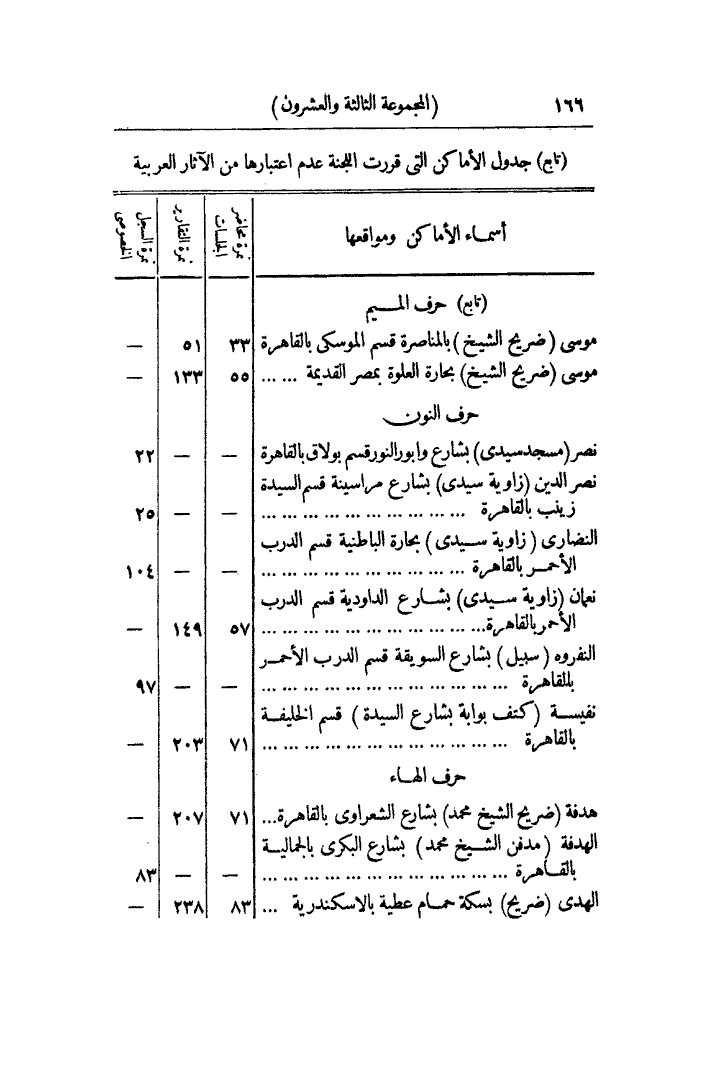 ١٦٦ (المجموعة الثالثة والعشرون)
(تابع) جدول الأماكن التى قررت اللجنة عدم اعتبارها من الآثار العربية
أسماء الأماكن ومواقعها نمرة محاضر الجلسات نمرة التقارير نمرة السجل الخصوصى
(تابع) حرف الميم
موسى (ضريح الشيخ) بالمناصرة قسم الموسكى بالقاهرة ٣٣ ٥١ —
موسى (ضريح الشيخ) بحارة العلوة بمصر القديمة ... ... ٥٥ ١٣٣ —
حرف النون
نصر (مسجد سيدى) بشارع وابور النور قسم بولاق بالقاهرة — — ٢٢
نصر الدين (زاوية سيدى) بشارع مراسينة قسم السيدة
زينب بالقاهرة ... ... ... ... ... ... ... ... ... ... — — ٢٥
النضارى (زاوية سيدى) بحارة الباطنية قسم الدرب
الأحمر بالقاهرة ... ... ... ... ... ... ... ... ... ... — — ١٠٤
نعمان (زاوية سيدى) بشارع الداودية قسم الدرب
الأحمر بالقاهرة... ... ... ... ... ... ... ... ... ... ٥٧ ١٤٩ —
النفروه (سبيل) بشارع السويقة قسم الدرب الأحمر
بالمقاهرة ... ... ... ... ... ... ... ... ... ... ... ... — — ٩٧
نفيسة (كتف بوابة بشارع السيدة) قسم الخليفة
بالقاهرة ... ... ... ... ... ... ... ... ... ... ... ... ٧١ ٢٠٣ —
حرف الهاء
هدفة (ضريح الشيخ محمد) بشارع الشعراوى بالقاهرة... ٧١ ٢٠٧ —
الهدفة (مدفن الشيخ محمد) بشارع البكرى بالجمالية
بالقاهرة ... ... ... ... ... ... ... ... ... ... ... ... — — ٨٣
الهدى (ضريح) بسكة حمام عطية بالاسكندرية ... ٨٣ ٢٣٨ —